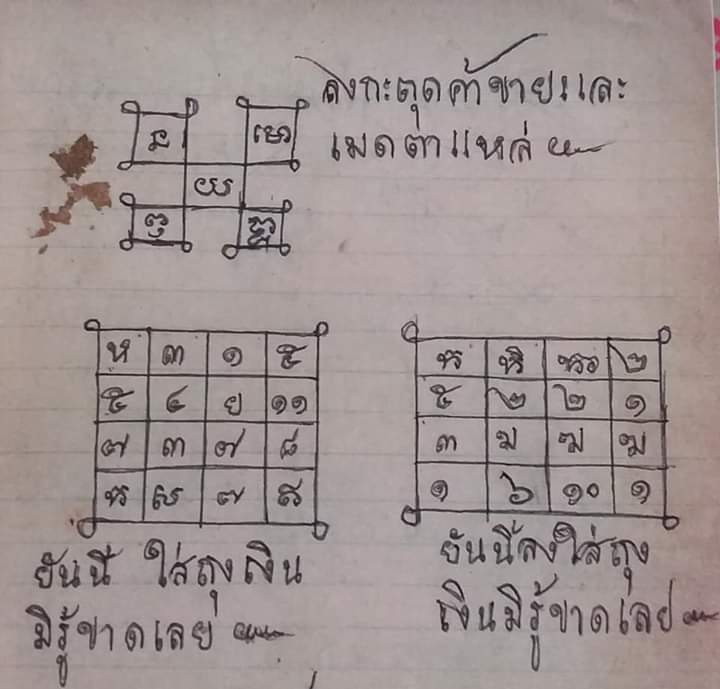 ลงกะตุดค้าขายและ
เมดตาแหล่
น มो
ย
ห ๓ ๑ ๕
๕ ๔ ย ๑๑
๗ ๓ ๗ ๘
๗
๒
๕ ๒ ๒ ๑
๓
๑ ๖ ๑๐ ๑
ยันนี ใส่ถุงเงิน
มิรู้ขาดเลย
ยันนี้ลงใส่ถุง
เงินมิรู้ขาดเลย